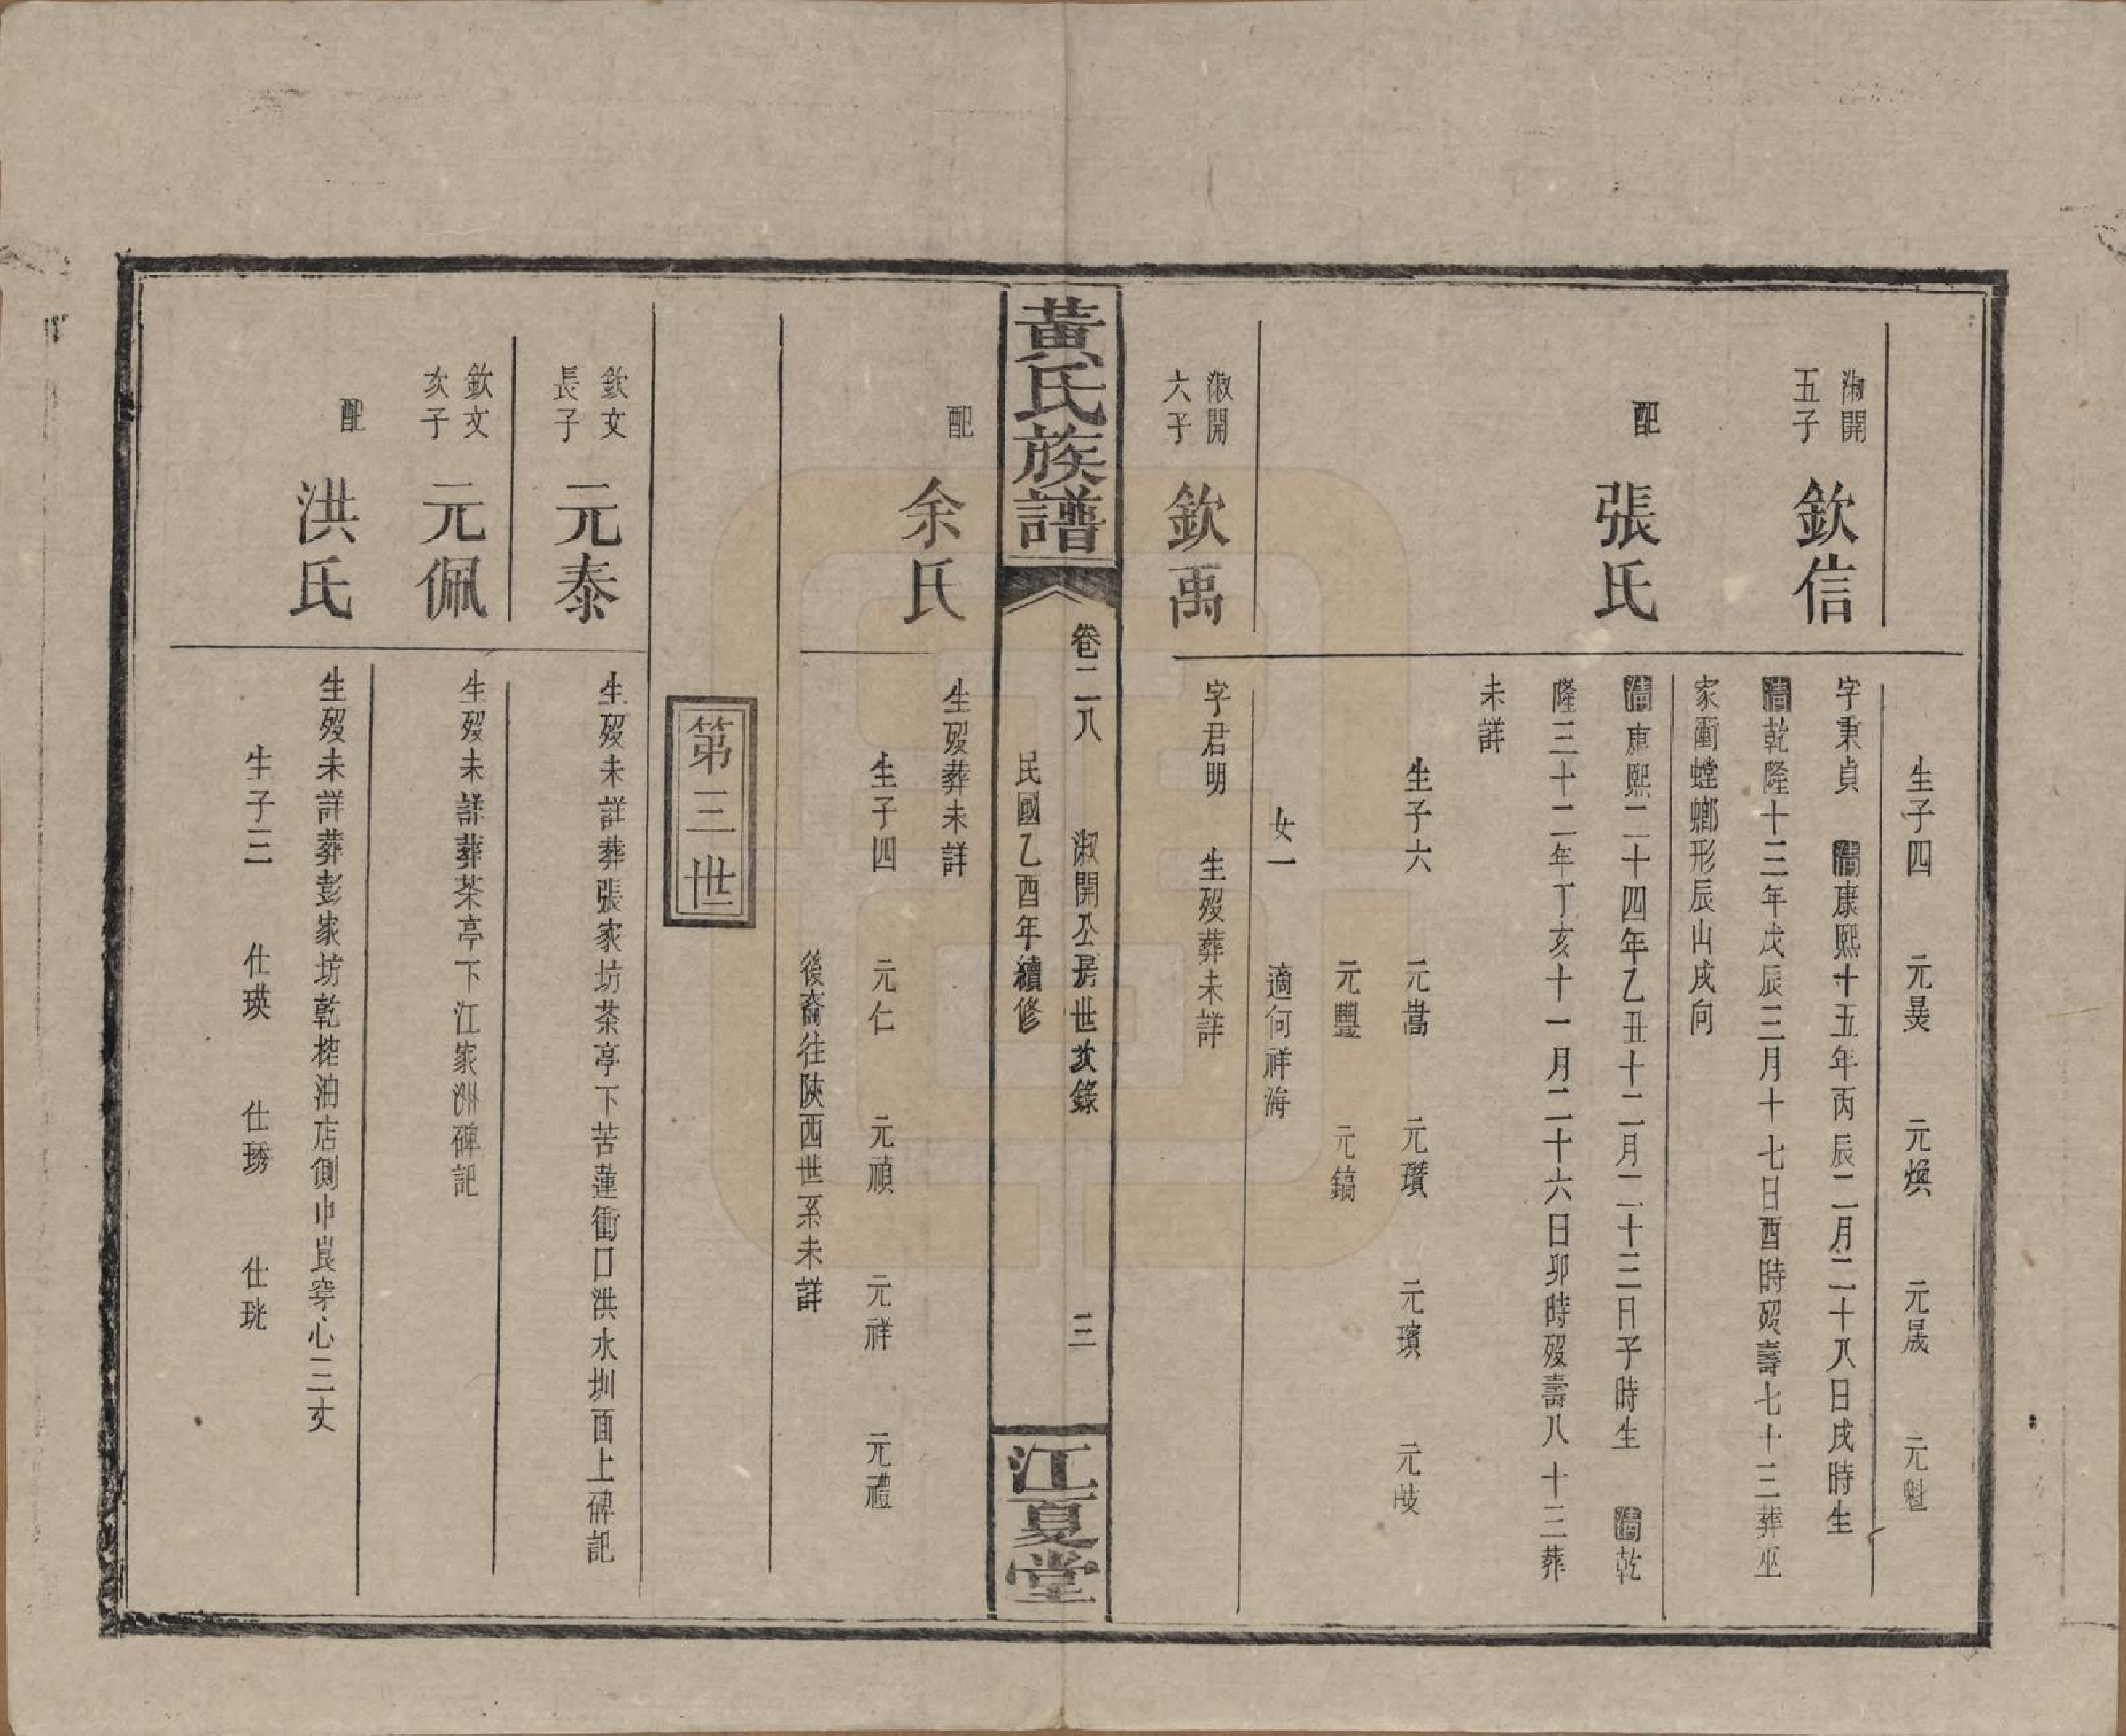 生子四 元昊 元煥 元晟 元魁
淑開
五子
欽信
字秉貞 清康熙十五年丙辰二月二十八日戌時生
清乾隆十三年戊辰三月十七日酉時歿壽七十三葬巫
家衝螳螂形辰山戌向
配
張氏
清康熙二十四年乙丑十二月二十三日子時生 清乾
隆三十二年丁亥十一月二十六日卯時歿壽八十三葬
未詳
生子六 元嵩 元瓚 元璸 元岐
元豐 元鎬
女一 適何祥海
淑開
六子
欽禹
字君明 生歿葬未詳
黃氏族譜
卷二八 淑開公房世次錄 三
民國乙酉年續修
江夏堂
配
余氏
生歿葬未詳
生子四 元仁 元禎 元祥 元禮
後裔往陝西世系未詳
第三世
欽文
長子
元泰
生歿未詳葬張家坊茶亭下苦蓮衝口洪水圳面上碑記
欽文
次子
元佩
生歿未詳葬茶亭下江家洲碑記
配
洪氏
生歿未詳葬彭家坊乾榨油店側中崀穿心三丈
生子三 仕瑛 仕琇 仕珖